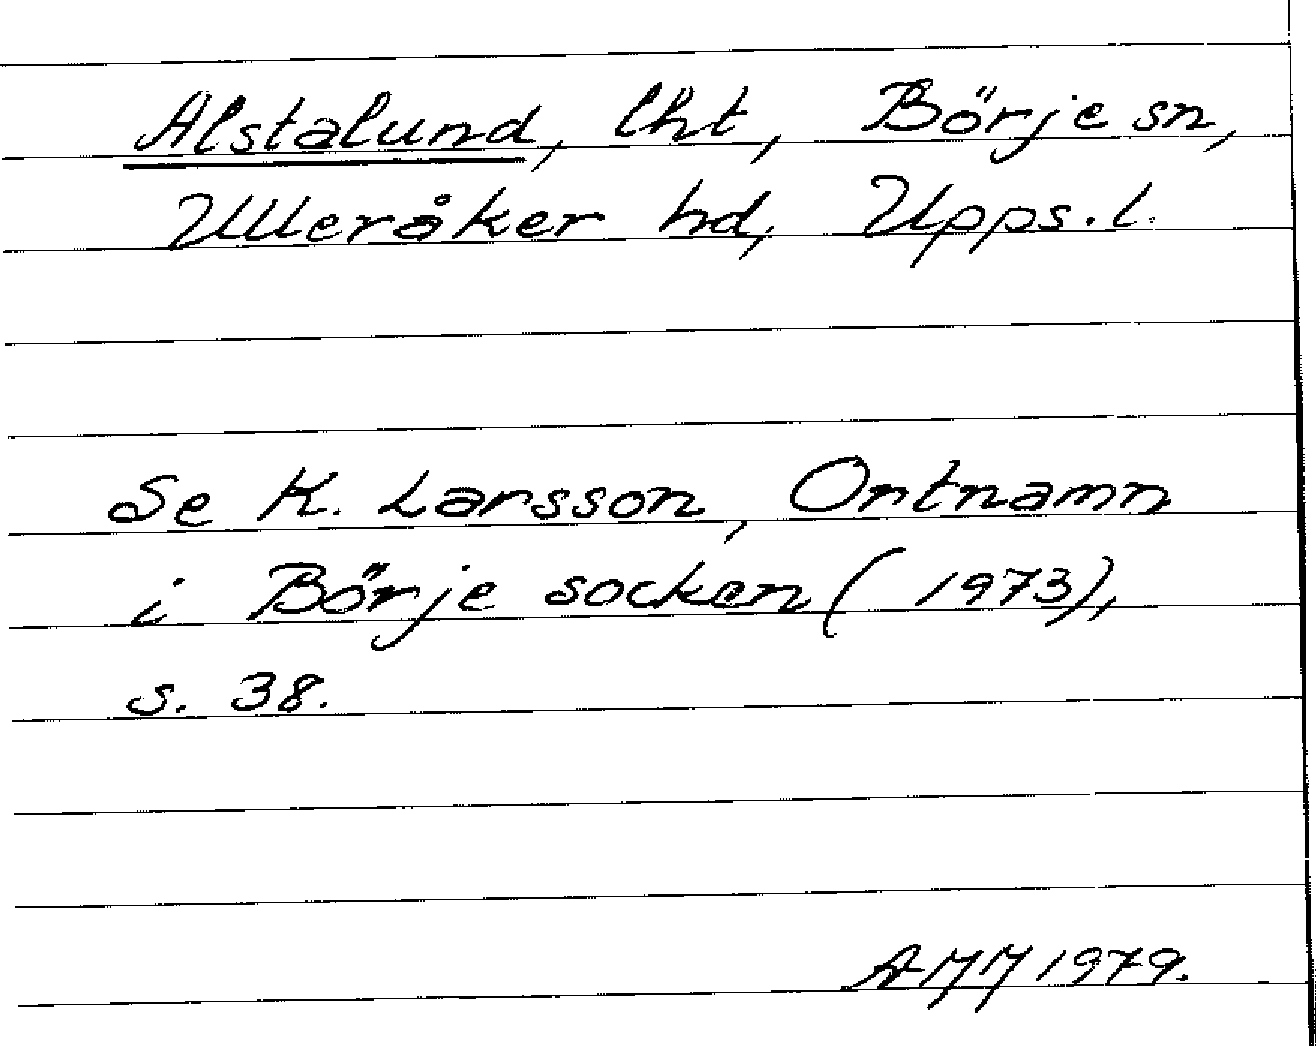 Alstalund, lht, Börje sn,
Ulleråker hd, Upps. l.
Se K. Larsson, Ortnamn
i Börje socken (1973),
s. 38.
1979.